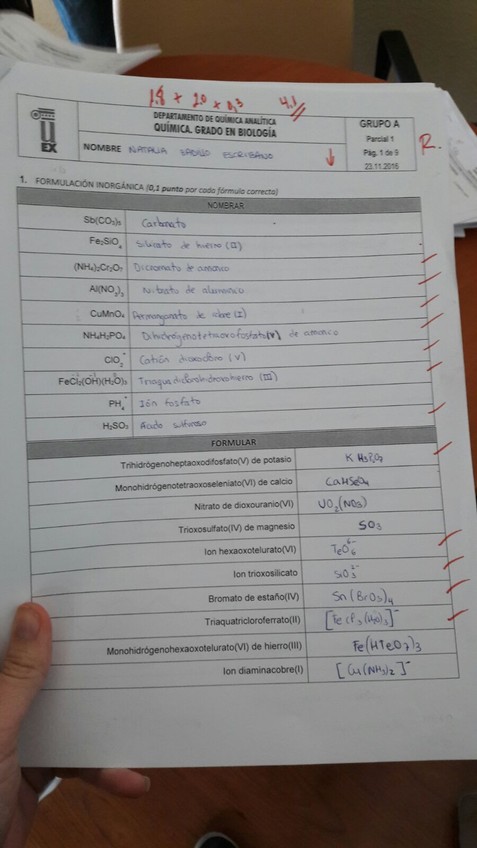 1.8 + 2.0 + 0,3 4.1
DEPARTAMENTO DE QUÍMICA ANALÍTICA
QUÍMICA. GRADO EN BIOLOGÍA
UEX
NOMBRE NATALIA BABILLO ESCRIBANO
GRUPO A
Parcial 1
Pág. 1 de 9
23.11.2016
R.
1. FORMULACIÓN INORGÁNICA (0,1 punto por cada fórmula correcta)
NOMBRAR
Sb(CO3)5 Carbonato
Fe2SiO4 Silicato de hierro (II)
(NH4)2Cr2O7 Dicromato de amonico
Al(NO3)3 Nitrato de alumonico
CuMnO4 Permanganato de cobre (I)
NH4H2PO4 Dihidrógenotetraoxofosfato(V) de amonico
ClO2+ Catión dioxocloro (V)
FeCl2(OH)(H2O)3 Triaquadiclorohidroxohierro (III)
PH4+ Ión fosfato
H2SO3 Ácido sulfuroso
FORMULAR
Trihidrógenoheptaoxodifosfato(V) de potasio K H3P2O7
Monohidrógenotetraoxoseleniato(VI) de calcio CaHSeO4
Nitrato de dioxouranio(VI) UO2(NO3)
Trioxosulfato(IV) de magnesio SO3
Ion hexaoxotelurato(VI) TeO6 6-
Ion trioxosilicato SiO3 2-
Bromato de estaño(IV) Sn(BrO3)4
Triaquatricloroferrato(II) [FeCl3(H2O)3]-
Monohidrógenohexaoxotelurato(VI) de hierro(III) Fe(HTeO7)3
Ion diaminacobre(I) [Cu(NH3)2]-